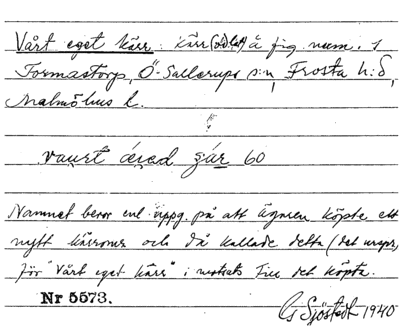 Vårt eget kärr: kärr (odlat) å fig. num. 1
Formastorp, Ö. Sallerups s:n, Frosta h:d,
Malmöhus l.
60
Namnet beror enl. uppg. på att ägaren köpte ett
nytt kärrområ och då kallade detta (det urspr.
för "Vårt eget kärr" i motsats till det köpta.
Nr 5573.
G Sjöstedt 1940